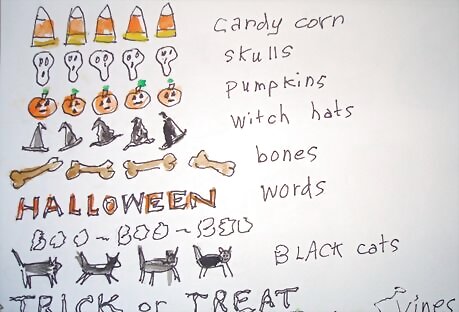 candy corn
skulls
pumpkins
witch hats
bones
words
HALLOWEEN
BOO-BOO-BOO
BLACK cats
TRICK or TREAT
Vines